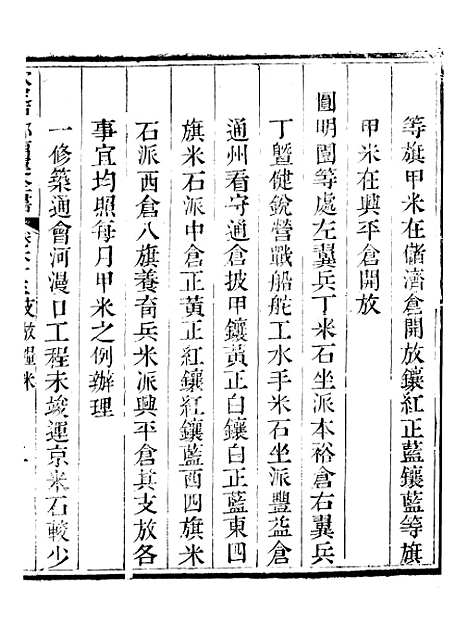 等旗甲米在儲濟倉開放鑲紅正藍鑲藍等旗
甲米在興平倉開放
圓明園等處左翼兵丁米石坐派本裕倉右翼兵
丁暨健銳營戰船舵工水手米石坐派豐益倉
通州看守通倉披甲鑲黃正白鑲白正藍東四
旗米石派中倉正黃正紅鑲紅鑲藍西四旗米
石派西倉八旗養育兵米派興平倉其支放各
事宜均照每月甲米之例辦理
一修築通會河漫口工程未竣運京米石較少
支放糧米